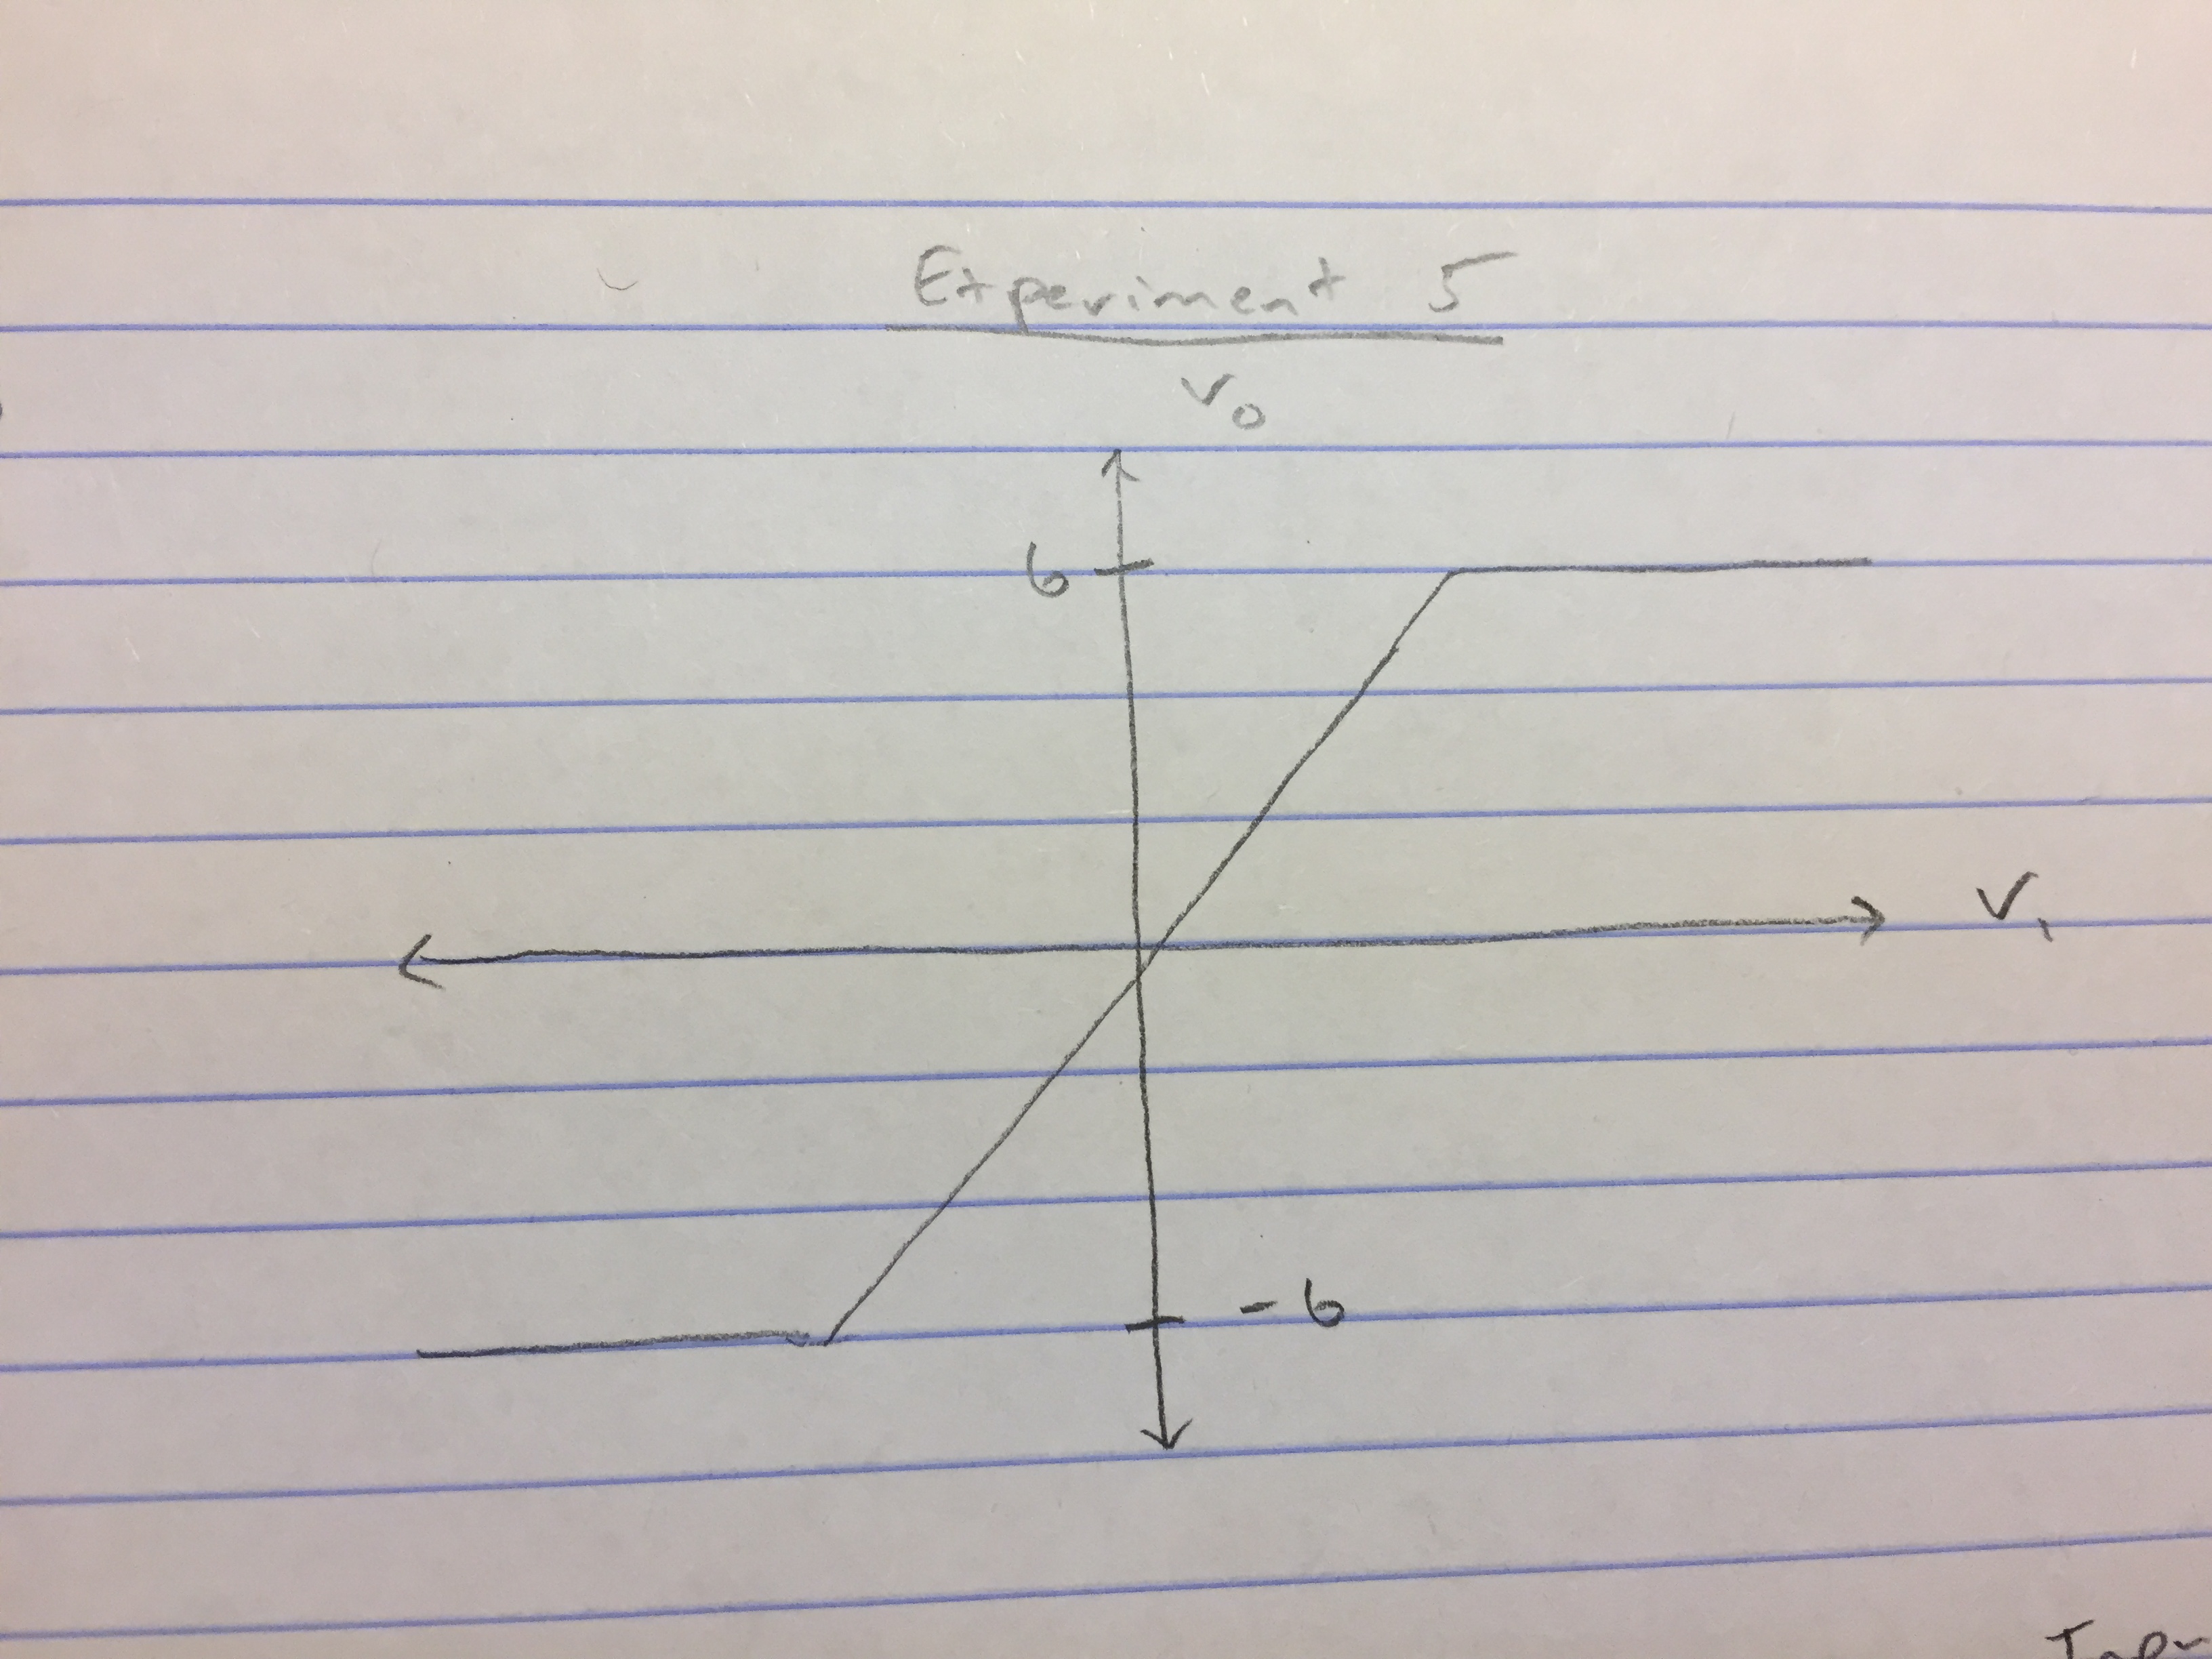 Experiment 5
Vo
6
Vi
-6